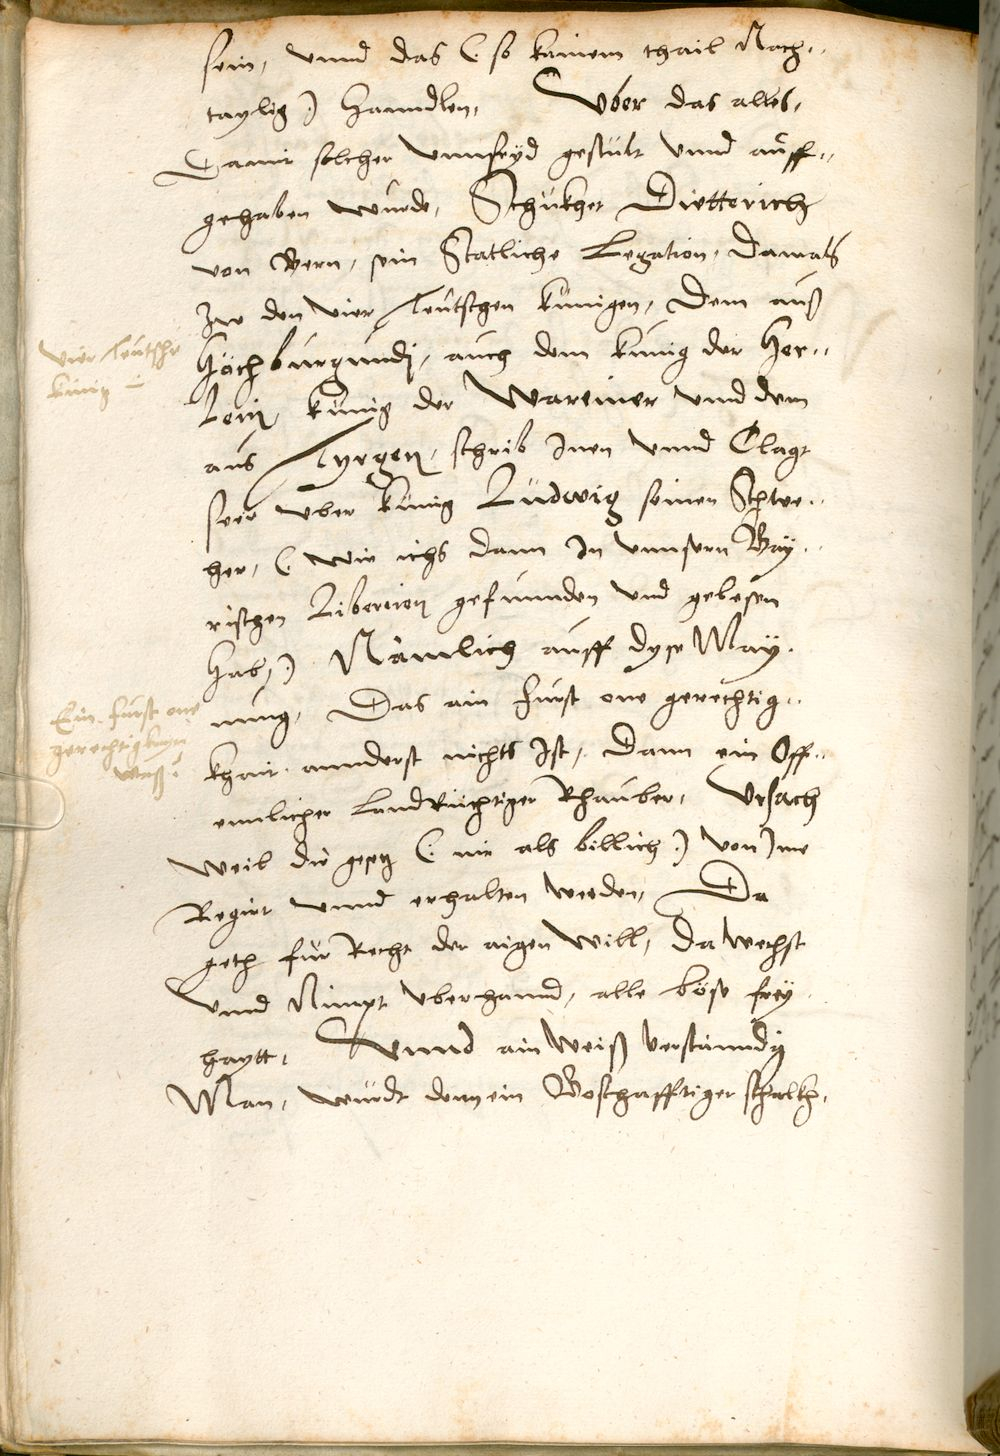 sein, vnnd das (: so kainem thail Nach-
taylig :) hanndlen, Vber das alles,
Damit solcher vnnfryd gestült vnnd auff-
gehaben wurde, Schückhet Dietterich
von Bern, sein Statliche Legation, damals
Zw den vier Teutschen künigen, Dem auß
Hochburgundj, auch dem künig der Her-
Lenn, künig der Wareiner vnnd dem
aus Tyrgen, schrib Inen vnnd Clagt
seer vber künig Ludwig seinen Schwe-
her, (: wie ichs dann In vnnsern Bay-
rischen Libereien gefunnden vnd gelesen
hab, :) Nämlich auff dyse May-
nung, Das ain fürst one gerechtig-
khait annderst nichts Ist, Dann ein Off-
ennlicher Landrüchtiger Rhauber, Vrsach
weil die gesetz (: nie als billich :) von Ime
Regirt vnnd erhalten werden, Da
geth für Recht der aigen Will, Da wechst
vnnd Nimpt vberhannd, alle böse frey
haytt, Vnnd ain Weiß verstänndig
Man, würdt denn ein Boschafftiger schalkh,
Vier Teutsche
künig
Ein fürst one
gerechtigkayt
was.